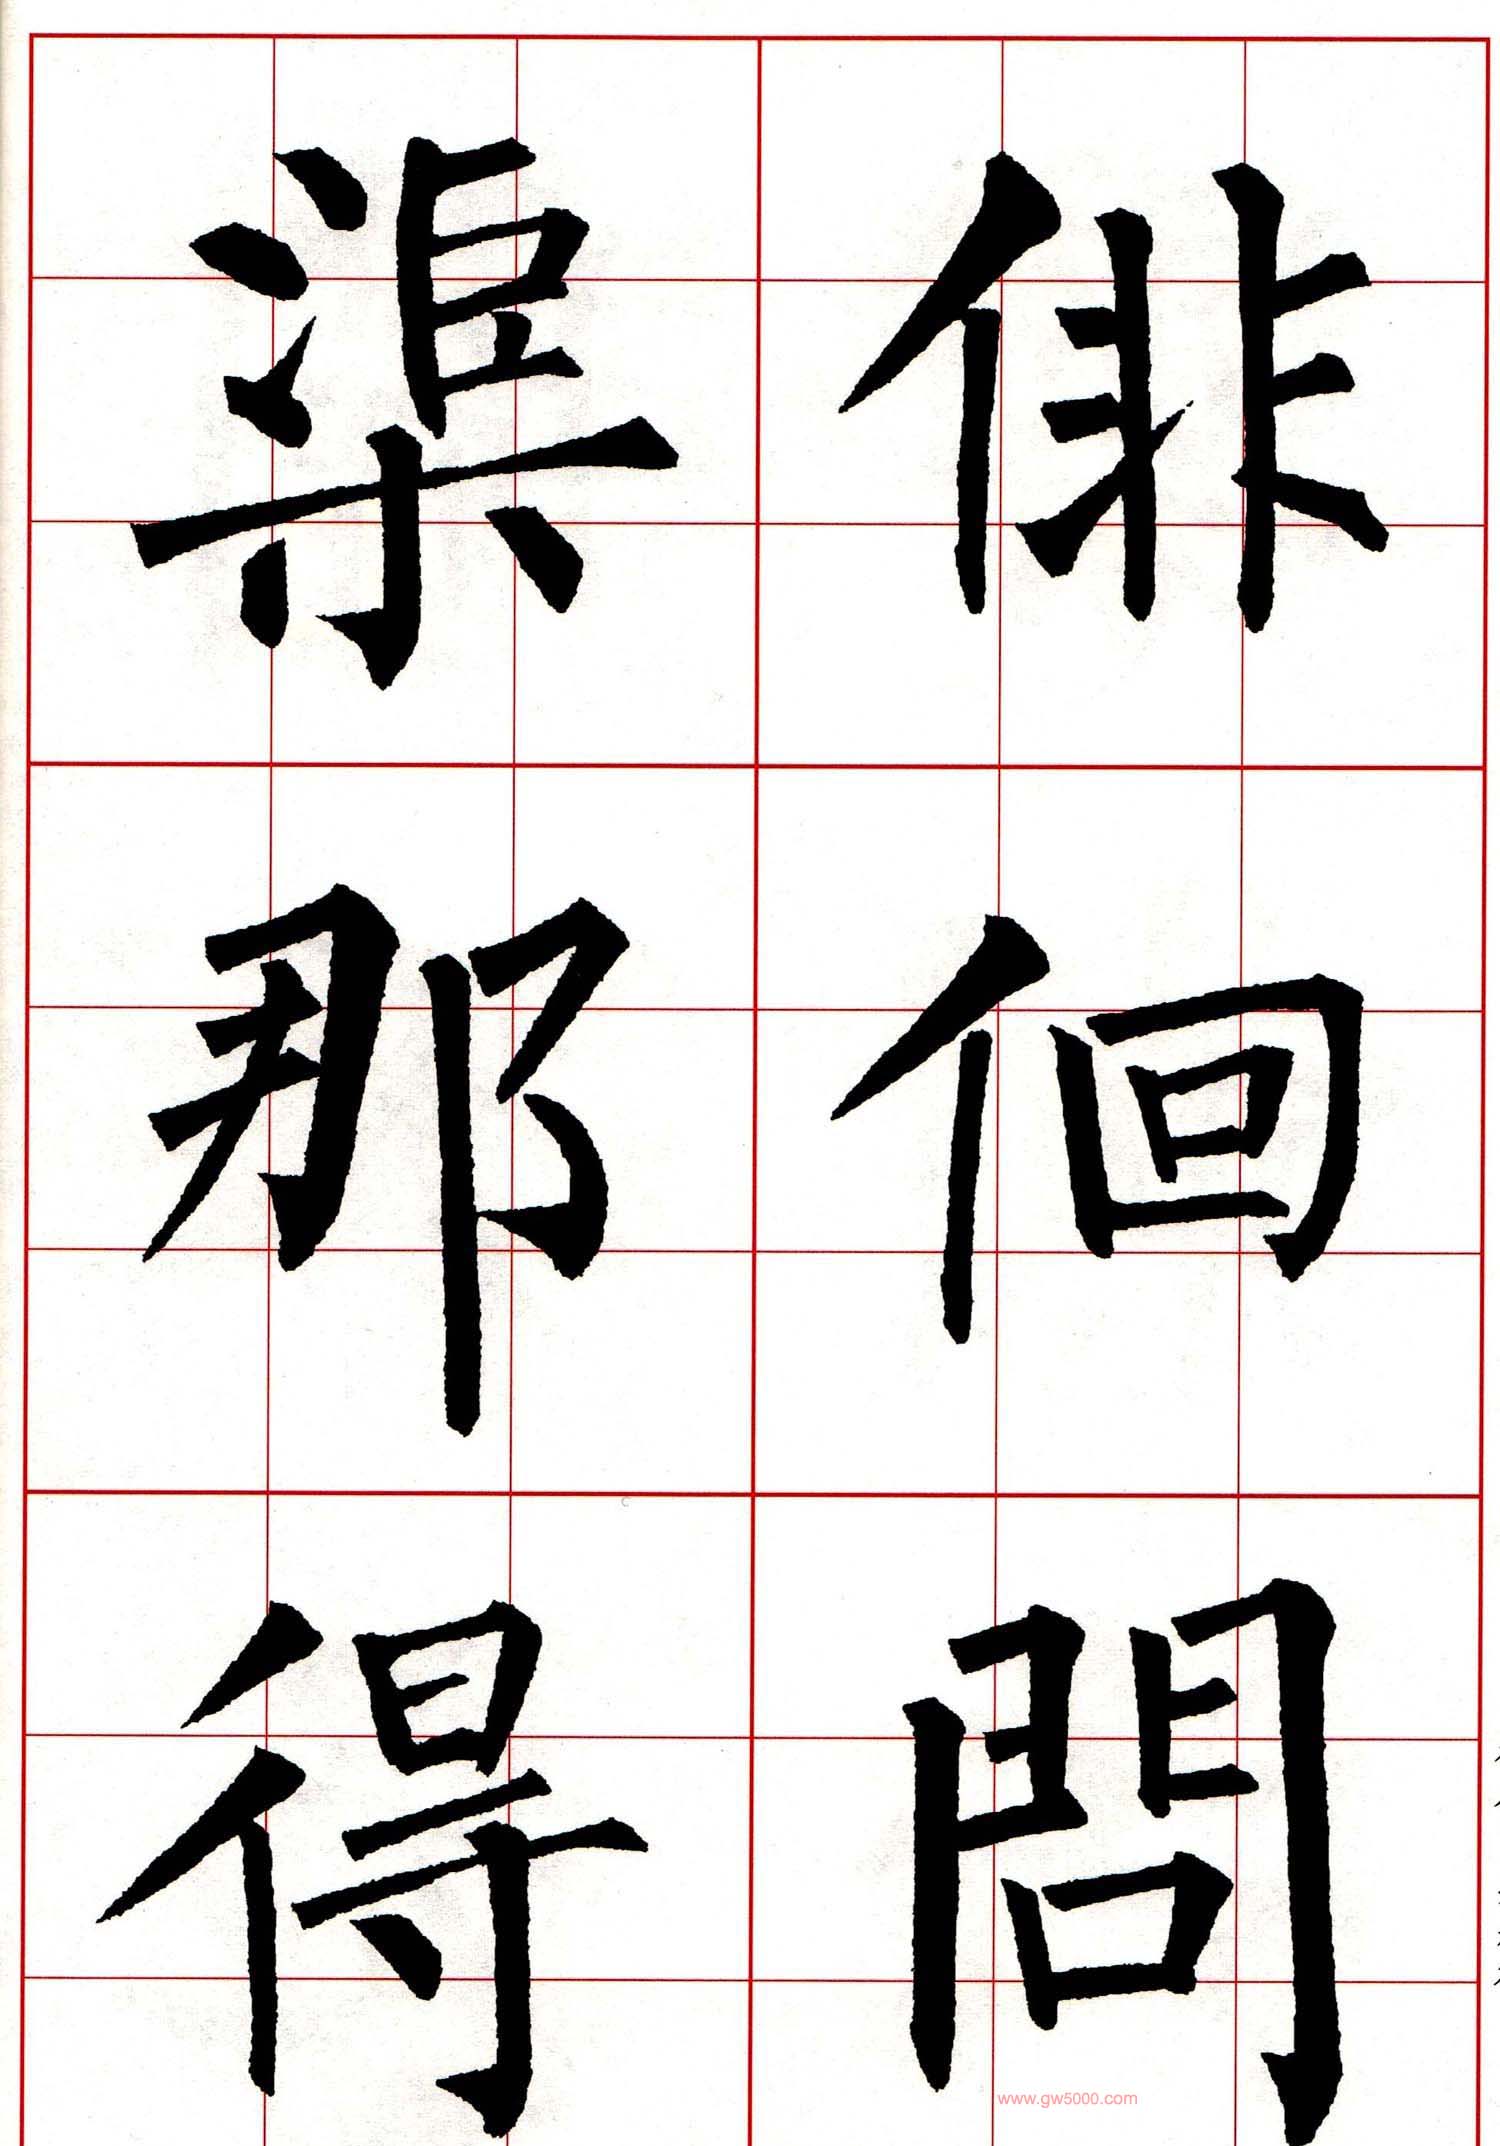 俳佪問
渠那得
www.gw5000.com